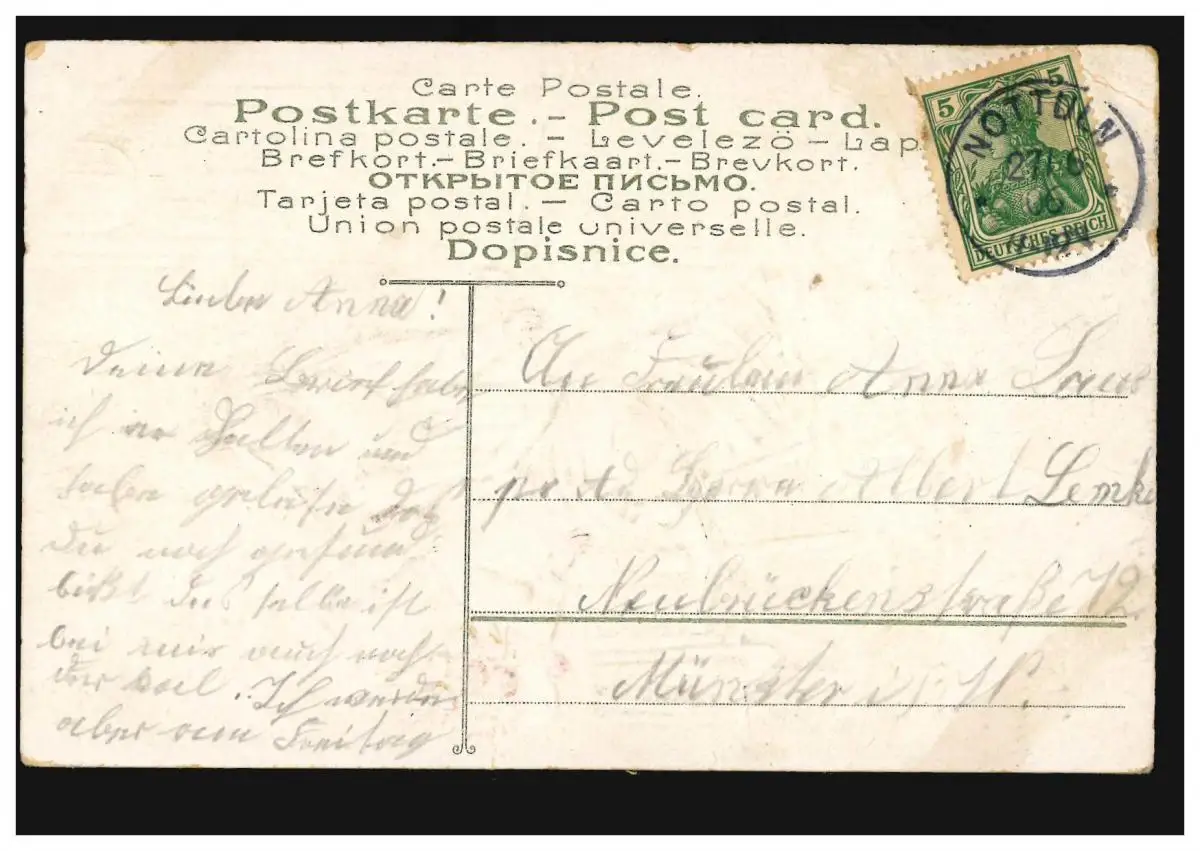 Carte Postale.
Postkarte. – Post card.
Cartolina postale. – Levelezö – Lap
Brefkort. – Briefkaart. – Brevkort.
ОТКРЫТОЕ ПИСЬМО.
Tarjeta postal. – Carto postal.
Union postale universelle.
Dopisnice.
5 5
DEUTSCHES REICH
NOTTULN
27
06
Liebe Anna!
Deine habe
ich er halten und
habe gelesen das
Du noch gesund
bist Das selbe ist
bei mir auch noch
der Ich werde
aber am Freitag
An Fräulein Anna
Herrn Albert Lemke
Neubrückenstraße 12.
Münster i/W.